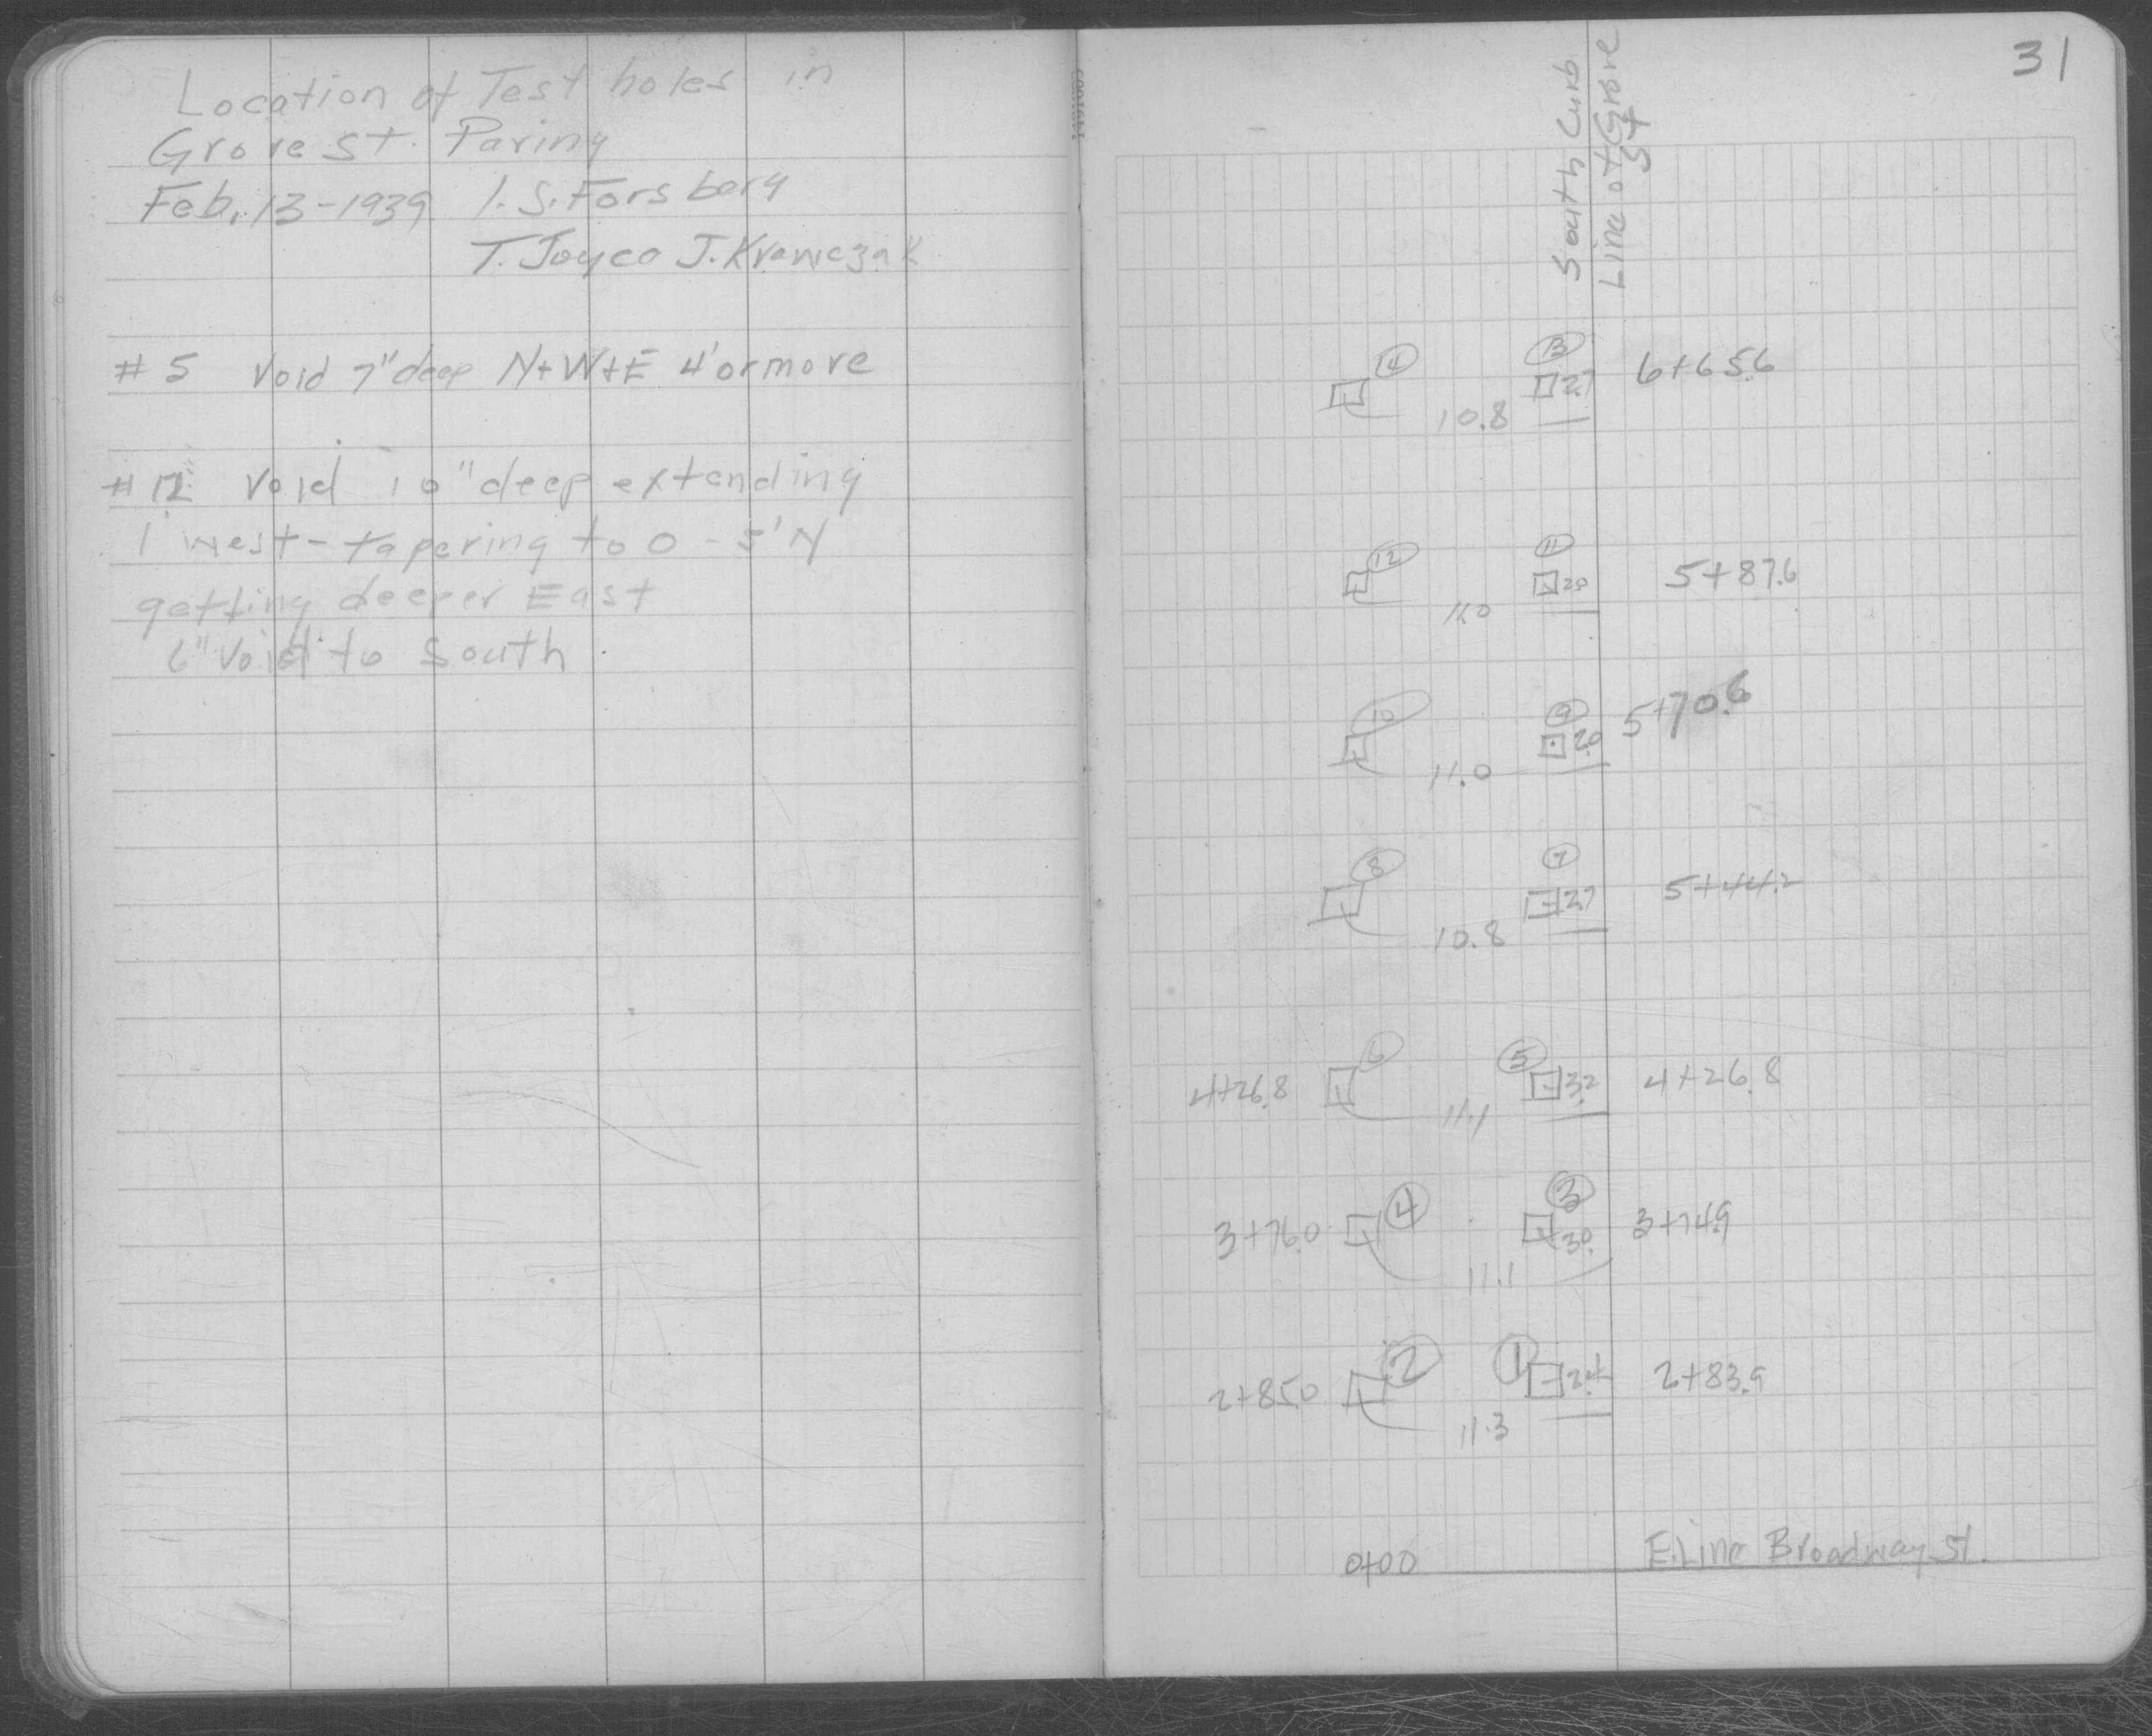 Location of Test holes in
Grove st. Paving
Feb. 13-1939 I.S. Forsberg
T. Joyce J. Krawczak
#5 Void 7" deep N+W+E 4' or more
#12 Void 10" deep extending
1' west - tapering to 0 - 5' N
getting deeper East
6" Void to South
31
South Curb
Line of Grove
St
14 13 6+65.6
2.7
10.8
12 11 5+87.6
2.0
11.0
10 9 5+70.6
2.0
11.0
8 7 5+44.2
2.7
10.8
6 5
4+26.8 3.2 4+26.8
11.1
4 3
3+76.0 3.0 3+74.9
11.1
2 1
2+85.0 2.4 2+83.9
11.3
0+00 E. Line Broadway St.